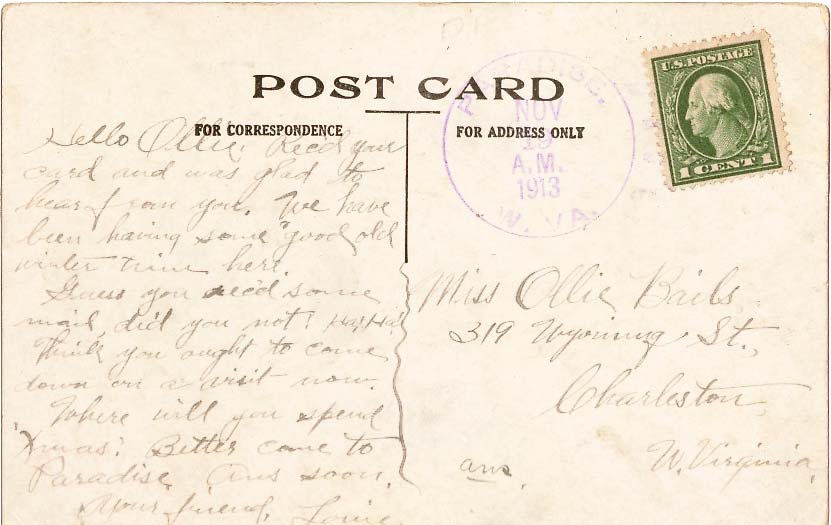 POST CARD
FOR CORRESPONDENCE
Hello Ollie. Recd your
card and was glad to
hear from you. We have
been having some "good old
winter time here.
Guess you rec'd some
mail, did you not! Ha! Ha!
Think you ought to come
down on a visit now.
Where will you spend
Xmas? Better come to
Paradise. Ans soon.
Your friend,
FOR ADDRESS ONLY
PARADISE.
NOV
19
A.M.
1913
W. VA.
U.S. POSTAGE
1 CENT 1
Miss Ollie Bails
319 Wyoming St.,
Charleston,
W. Virginia.
ans.